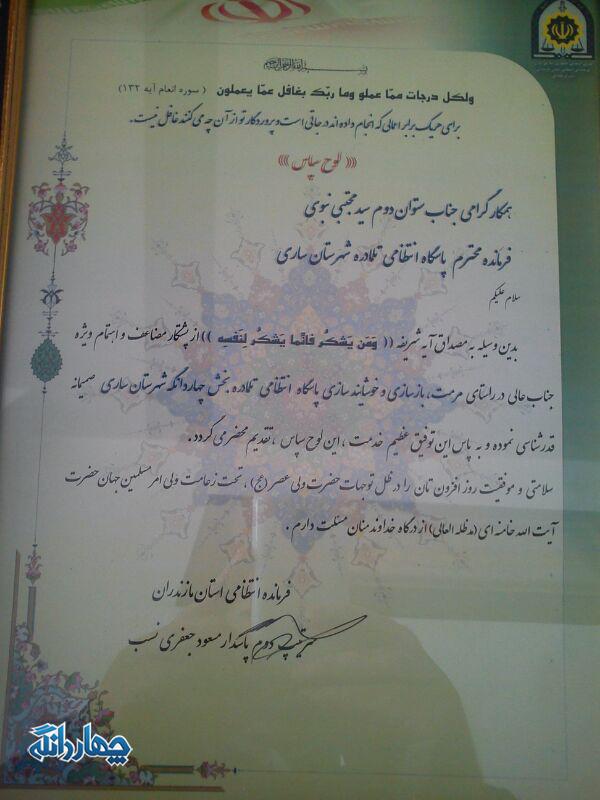 بسم الله الرحمن الرحیم
ولکل درجات ممّا عملو وما ربّک بغافل عمّا یعملون ( سوره انعام آیه ۱۳۲)
برای هر یک برابر اعمالی که انجام داده اند درجاتی است و پروردگار تو از آن چه می کنند غافل نیست.
((( لوح سپاس )))
همکار گرامی جناب ستوان دوم سید مجتبی نبوی
فرمانده محترم پاسگاه انتظامی تلمادره شهرستان ساری
سلام علیکم
بدین وسیله به مصداق آیه شریفه (( وَمَن یَشکُر فَانَّما یَشکُر لِنَفسِه )) از پشتکار مضاعف و اهتمام ویژه
جناب عالی در راستای مرمت، بازسازی و خوشایند سازی پاسگاه انتظامی تلمادره بخش چهاردانگه شهرستان ساری صمیمانه
قدرشناسی نموده و به پاس این توفیق عظیم خدمت ، این لوح سپاس ، تقدیم محضر می گردد .
سلامتی و موفقیت روز افزون تان را در ظل توجهات حضرت ولی عصر (عج) ، تحت زعامت ولی امر مسلمین جهان حضرت
آیت الله خامنه ای (مدظله العالی) از درگاه خداوند منان مسئلت دارم .
فرمانده انتظامی استان مازندران
سرتیپ دوم پاسدار مسعود جعفری نسب
چهاردانگه